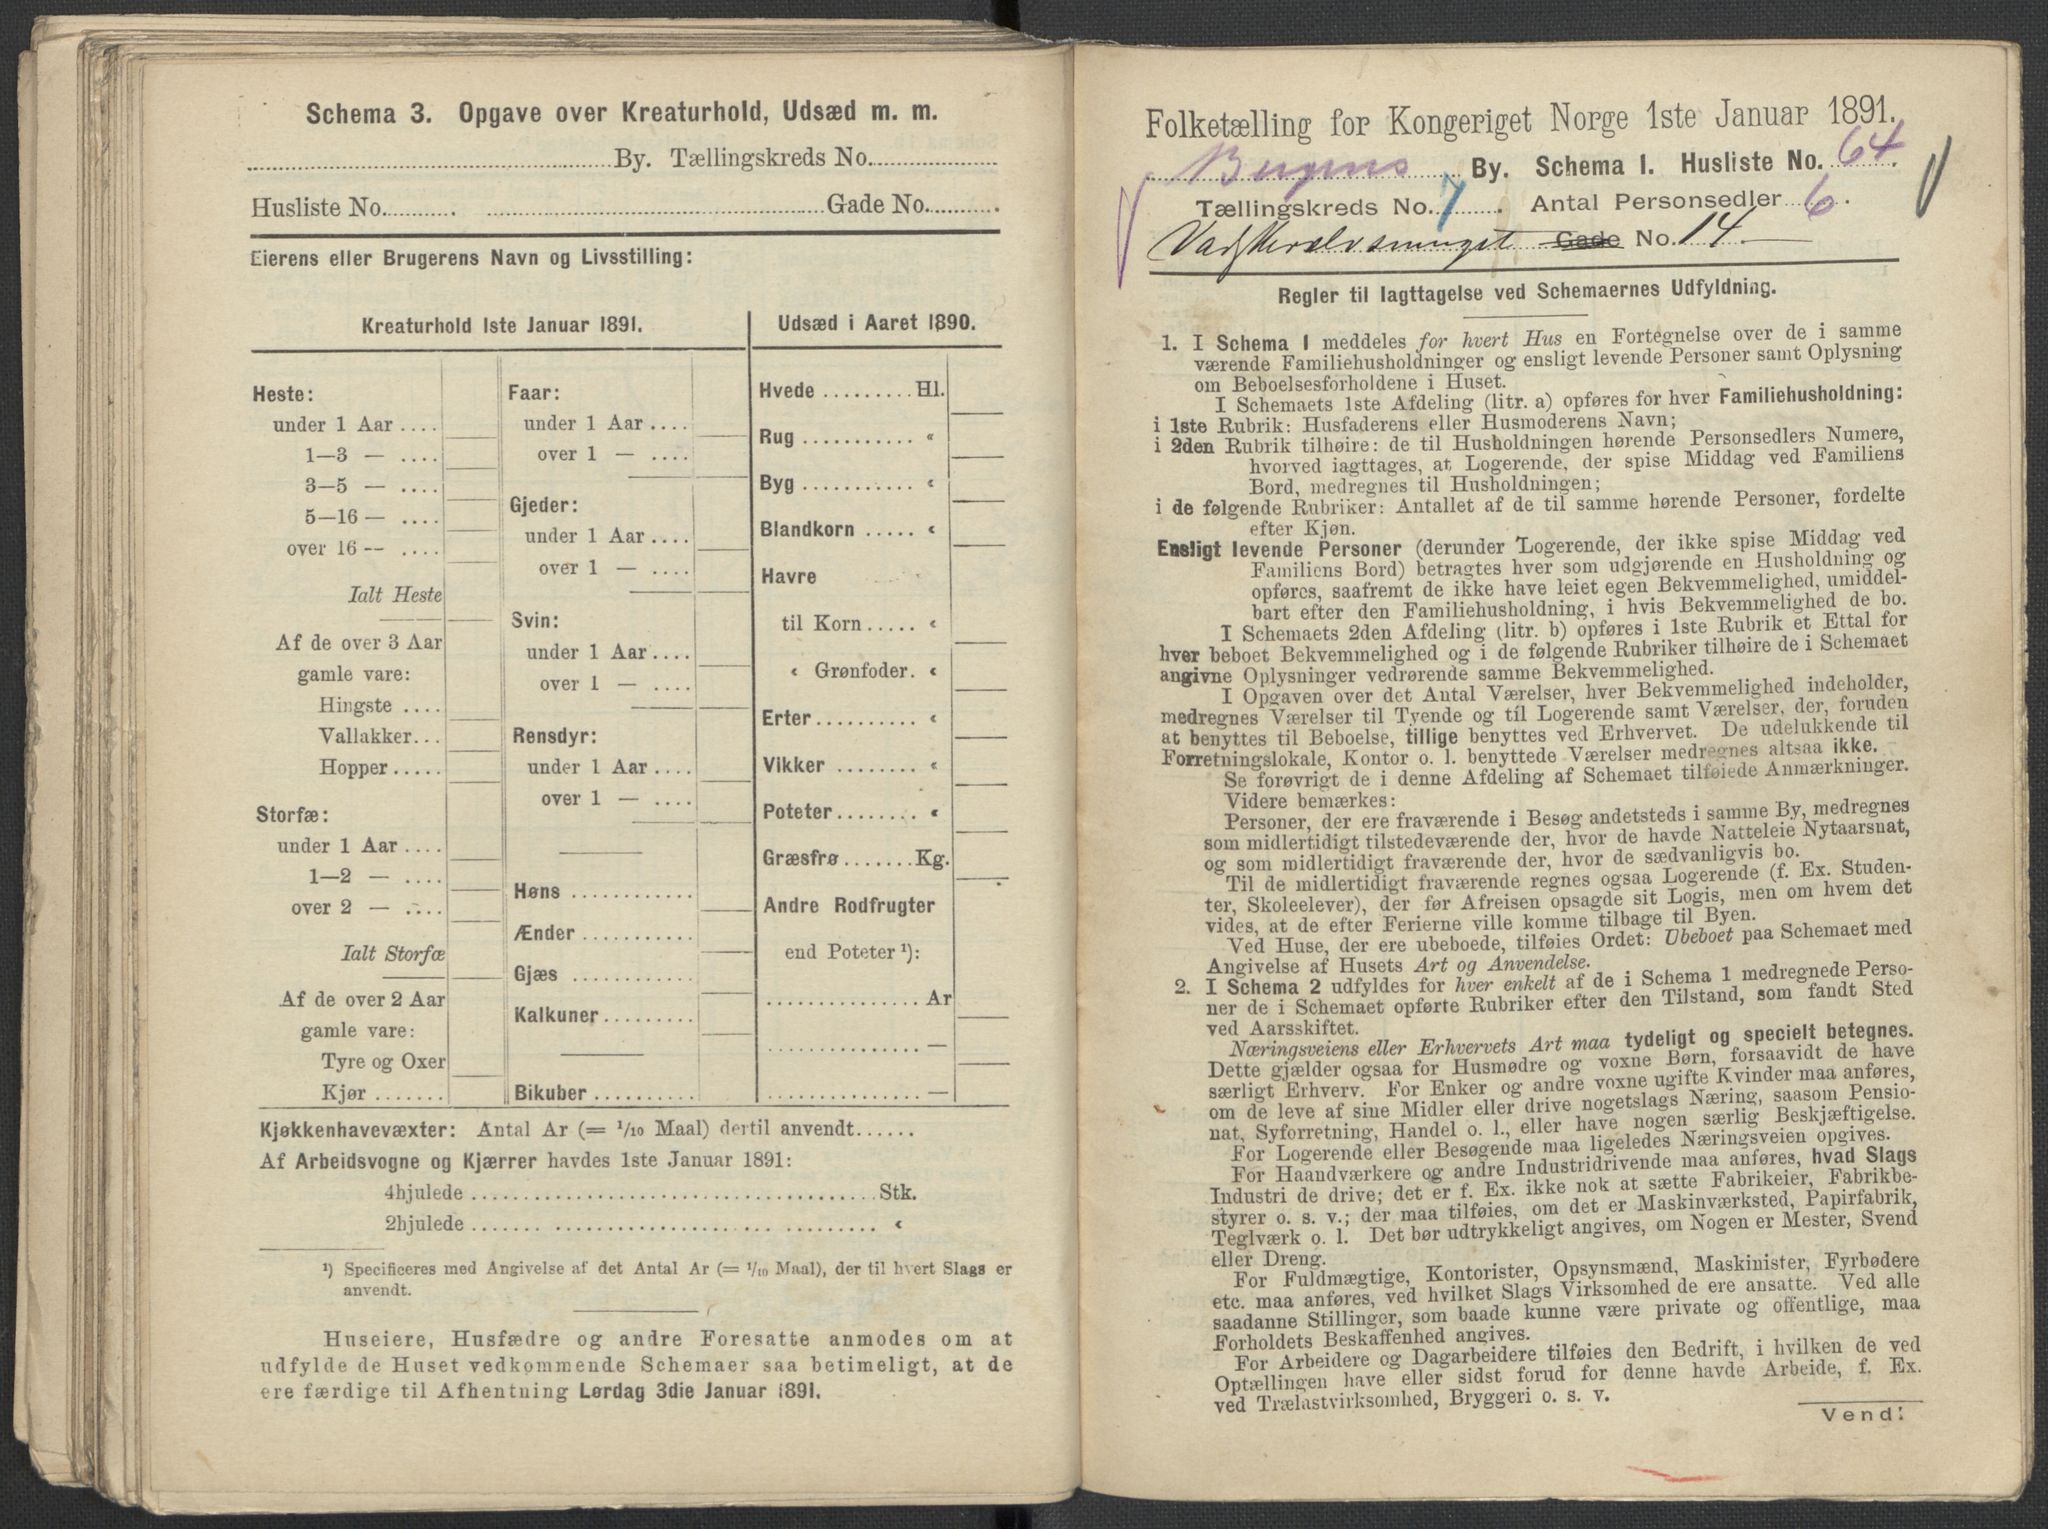 Schema 3. Opgave over Kreaturhold, Udsæd m. m.
By. Tællingskreds No.
Husliste No. Gade No.
Eierens eller Brugerens Navn og Livsstilling:
Kreaturhold 1ste Januar 1891.
Heste:
under 1 Aar ....
1—3 — ....
3—5 — ....
5—16 — ....
over 16 — ....
Ialt Heste
Af de over 3 Aar
gamle vare:
Hingste ....
Vallakker...
Hopper.....
Storfæ:
under 1 Aar ....
1—2 — ....
over 2 — ....
Ialt Storfæ
Af de over 2 Aar
gamle vare:
Tyre og Oxer
Kjør .......
Faar:
under 1 Aar ....
over 1 — ....
Gjeder:
under 1 Aar ....
over 1 — ....
Svin:
under 1 Aar ....
over 1 — ....
Rensdyr:
under 1 Aar ....
over 1 — ....
Høns ..........
Ænder ...........
Gjæs ............
Kalkuner.........
Bikuber ..........
Udsæd i Aaret 1890.
Hvede ......... Hl.
Rug ........... «
Byg ........... «
Blandkorn ..... «
Havre
til Korn ..... «
« Grønfoder. «
Erter.......... «
Vikker ........ «
Poteter ........ «
Græsfrø ....... Kg.
Andre Rodfrugter
end Poteter ¹):
............... Ar
............... —
............... —
Kjøkkenhavevæxter: Antal Ar (= 1/10 Maal) dertil anvendt......
Af Arbeidsvogne og Kjærrer havdes 1ste Januar 1891:
4hjulede ........................................ Stk.
2hjulede ........................................ «
¹) Specificeres med Angivelse af det Antal Ar (= 1/10 Maal), der til hvert Slags er
anvendt.
Huseiere, Husfædre og andre Foresatte anmodes om at
udfylde de Huset vedkommende Schemaer saa betimeligt, at de
ere færdige til Afhentning Lørdag 3die Januar 1891.
Folketælling for Kongeriget Norge 1ste Januar 1891.
Bergens By. Schema 1. Husliste No. 64.
Tællingskreds No. 7. Antal Personsedler 6.
Gade No. 14
Regler til Iagttagelse ved Schemaernes Udfyldning.
1. I Schema 1 meddeles for hvert Hus en Fortegnelse over de i samme
værende Familiehusholdninger og ensligt levende Personer samt Oplysning
om Beboelsesforholdene i Huset.
I Schemaets 1ste Afdeling (litr. a) opføres for hver Familiehusholdning:
i 1ste Rubrik: Husfaderens eller Husmoderens Navn;
i 2den Rubrik tilhøire: de til Husholdningen hørende Personsedlers Numere,
hvorved iagttages, at Logerende, der spise Middag ved Familiens
Bord, medregnes til Husholdningen;
i de følgende Rubriker: Antallet af de til samme hørende Personer, fordelte
efter Kjøn.
Ensligt levende Personer (derunder Logerende, der ikke spise Middag ved
Familiens Bord) betragtes hver som udgjørende en Husholdning og
opføres, saafremt de ikke have leiet egen Bekvemmelighed, umiddel-
bart efter den Familiehusholdning, i hvis Bekvemmelighed de bo.
I Schemaets 2den Afdeling (litr. b) opføres i 1ste Rubrik et Ettal for
hver beboet Bekvemmelighed og i de følgende Rubriker tilhøire de i Schemaet
angivne Oplysninger vedrørende samme Bekvemmelighed.
I Opgaven over det Antal Værelser, hver Bekvemmelighed indeholder,
medregnes Værelser til Tyende og til Logerende samt Værelser, der, foruden
at benyttes til Beboelse, tillige benyttes ved Erhvervet. De udelukkende til
Forretningslokale, Kontor o. l. benyttede Værelser medregnes altsaa ikke.
Se forøvrigt de i denne Afdeling af Schemaet tilføiede Anmærkninger.
Videre bemærkes:
Personer, der ere fraværende i Besøg andetsteds i samme By, medregnes
som midlertidigt tilstedeværende der, hvor de havde Natteleie Nytaarsnat,
og som midlertidigt fraværende der, hvor de sædvanligvis bo.
Til de midlertidigt fraværende regnes ogsaa Logerende (f. Ex. Studen-
ter, Skoleelever), der før Afreisen opsagde sit Logis, men om hvem det
vides, at de efter Ferierne ville komme tilbage til Byen.
Ved Huse, der ere ubeboede, tilføies Ordet: Ubeboet paa Schemaet med
Angivelse af Husets Art og Anvendelse.
2. I Schema 2 udfyldes for hver enkelt af de i Schema 1 medregnede Perso-
ner de i Schemaet opførte Rubriker efter den Tilstand, som fandt Sted
ved Aarsskiftet.
Næringsveiens eller Erhvervets Art maa tydeligt og specielt betegnes.
Dette gjælder ogsaa for Husmødre og voxne Børn, forsaavidt de have
særligt Erhverv. For Enker og andre voxne ugifte Kvinder maa anføres,
om de leve af sine Midler eller drive nogetslags Næring, saasom Pensio-
nat, Syforretning, Handel o. l., eller have nogen særlig Beskjæftigelse.
For Logerende eller Besøgende maa ligeledes Næringsveien opgives.
For Haandværkere og andre Industridrivende maa anføres, hvad Slags
Industri de drive; det er f. Ex. ikke nok at sætte Fabrikeier, Fabrikbe-
styrer o. s. v.; der maa tilføies, om det er Maskinværksted, Papirfabrik,
Teglværk o. l. Det bør udtrykkeligt angives, om Nogen er Mester, Svend
eller Dreng.
For Fuldmægtige, Kontorister, Opsynsmænd, Maskinister, Fyrbødere
etc. maa anføres, ved hvilket Slags Virksomhed de ere ansatte. Ved alle
saadanne Stillinger, som baade kunne være private og offentlige, maa
Forholdets Beskaffenhed angives.
For Arbeidere og Dagarbeidere tilføies den Bedrift, i hvilken de ved
Optællingen have eller sidst forud for denne havde Arbeide, f. Ex.
ved Trælastvirksomhed, Bryggeri o. s. v.
Vend!